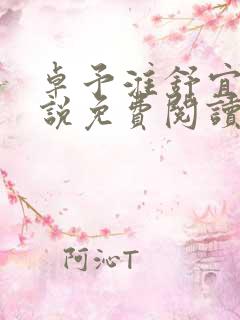 卓予淮舒宜
說免費閱讀
阿沁T